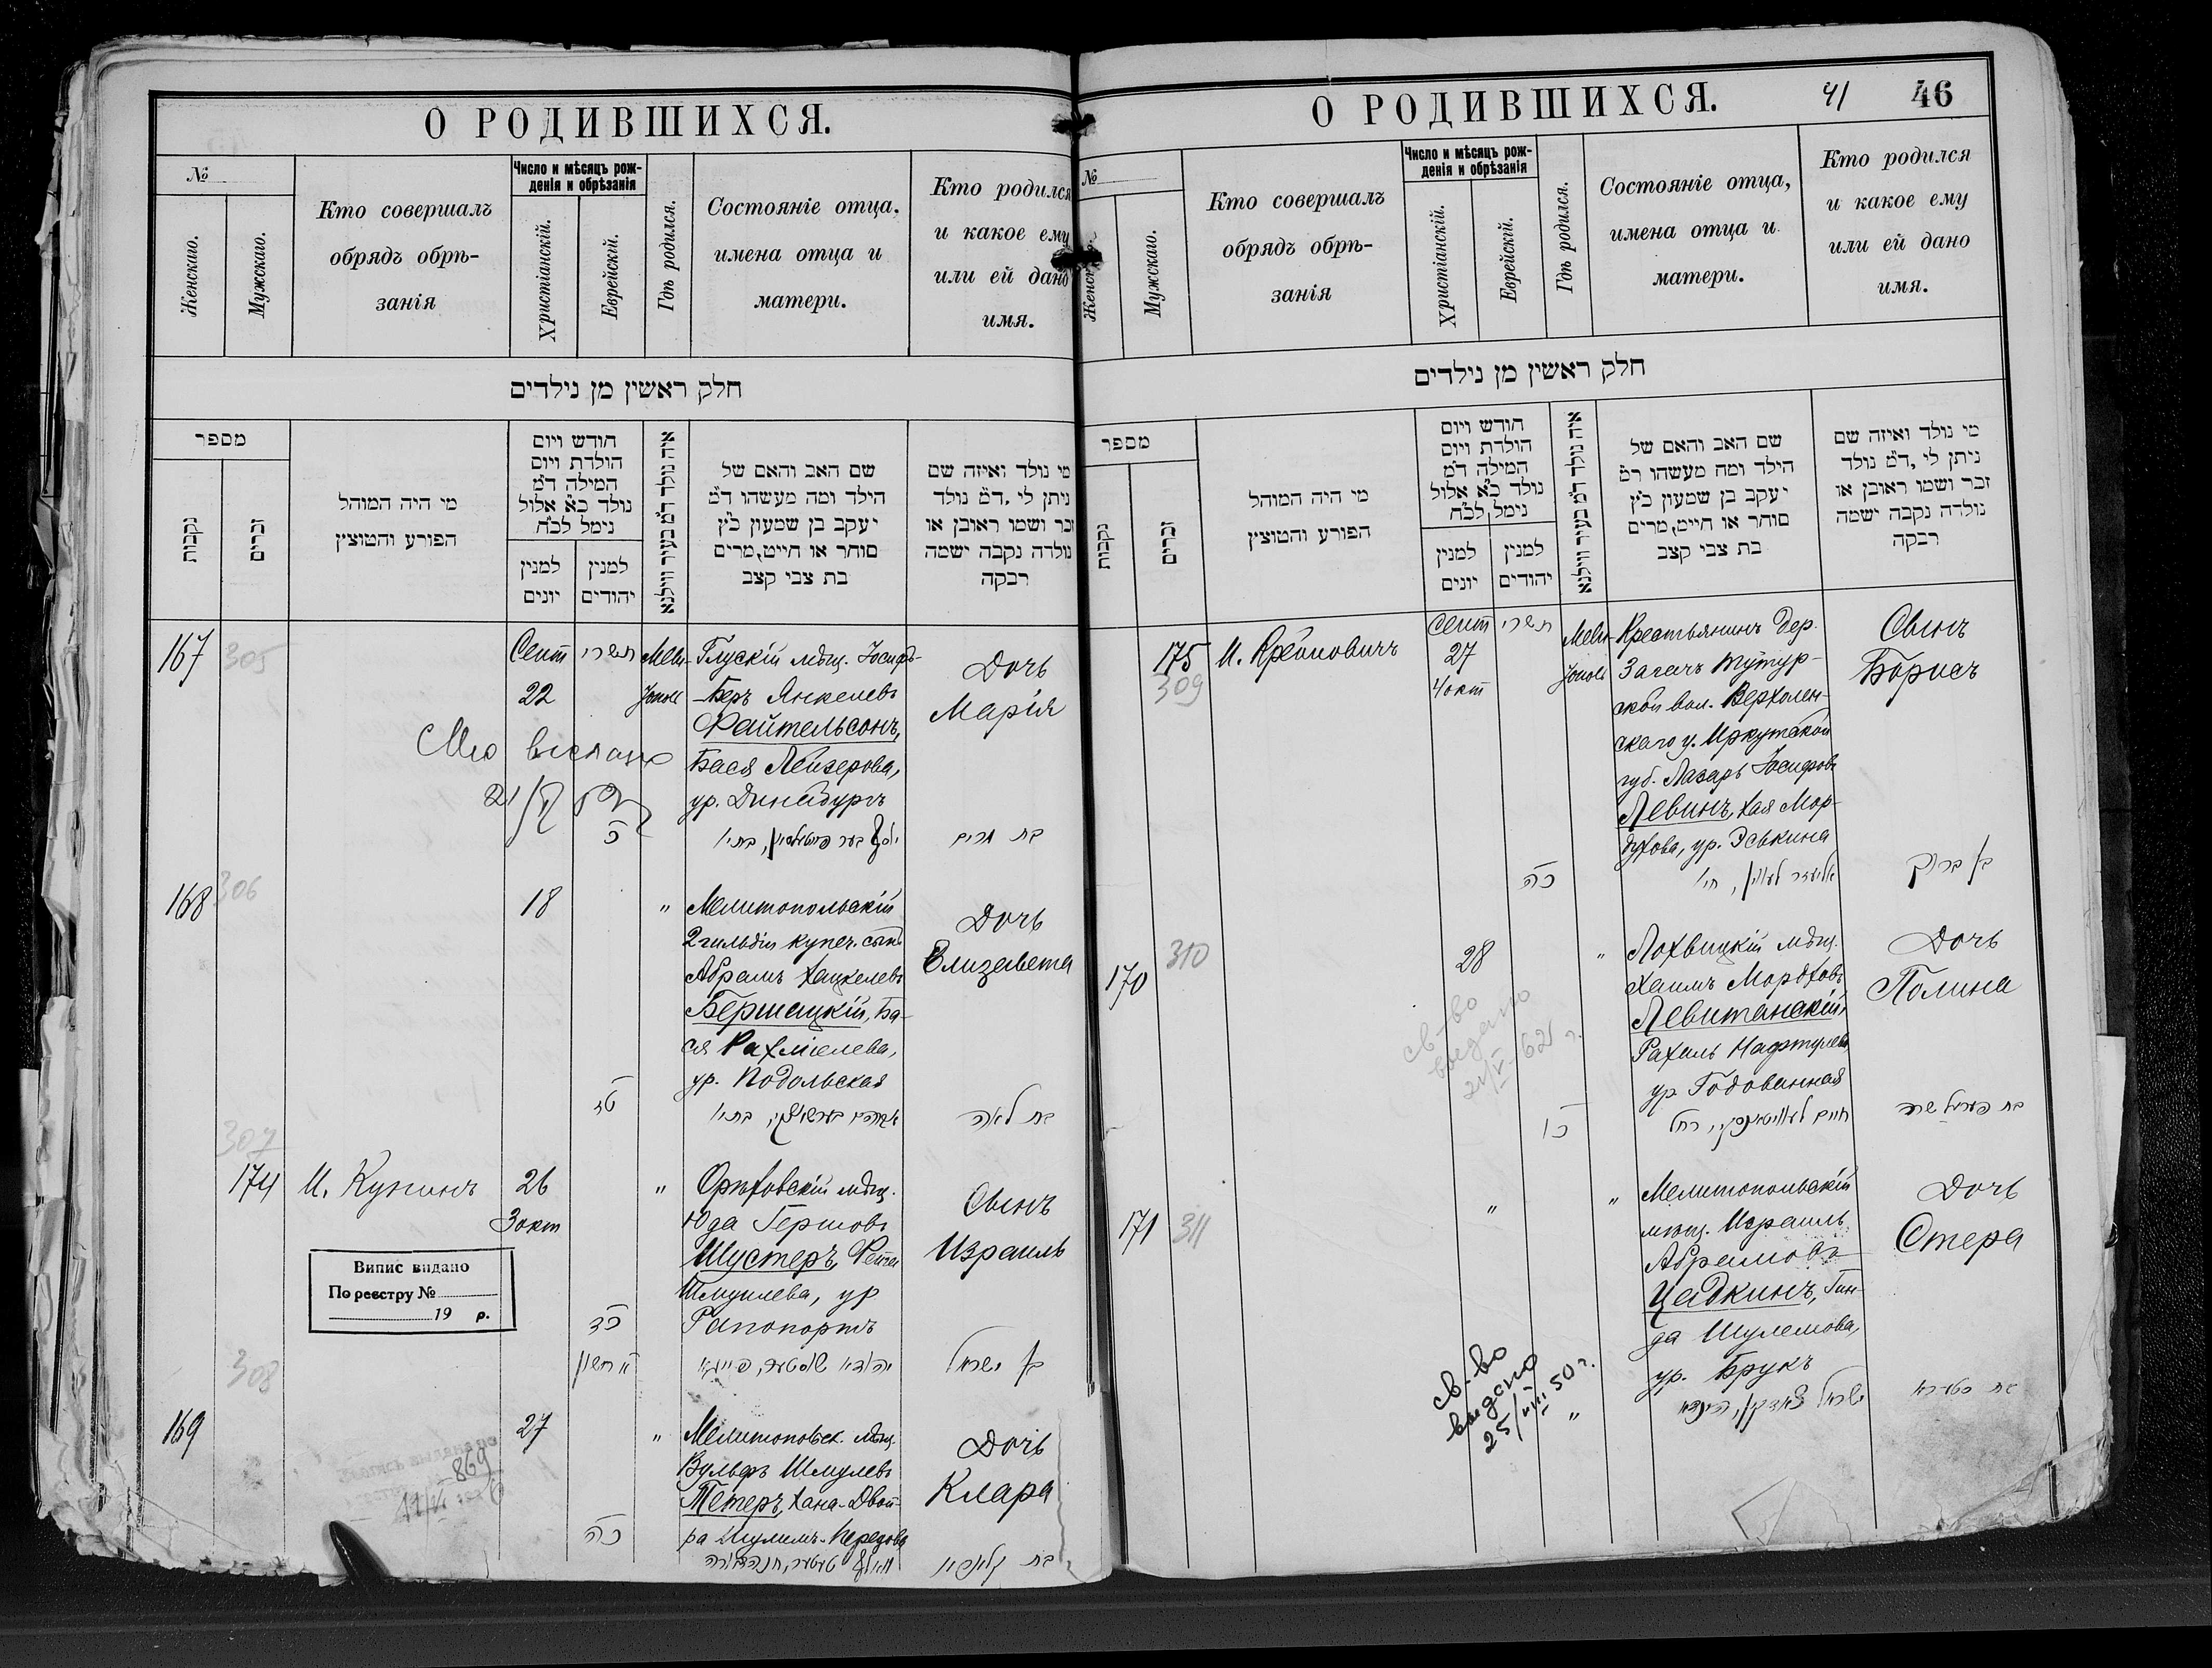 О РОДИВШИХСЯ.
№
Женскаго.
Мужскаго.
Кто совершалъ
обрядъ обрѣ-
занія
Число и мѣсяцъ рож-
денія и обрѣзанія
Христіанскій.
Еврейскій.
Гдѣ родился.
Состояніе отца,
имена отца и
матери.
Кто родился
и какое ему
или ей дано
имя.
חלק ראשין מן נילדים
מספר
נקבות
זכרים
מי היה המוהל
הפורע והמוצץ
חודש ויום
הולדת ויום
המילה ד״מ
נולד כ״א אלול
נימל לכ״ח
למנין
יונים
למנין
יהודים
איה נולד ד״מ בעיר ווילנא
שם האב והאם של
הילד ומה מעשהו ד״מ
יעקב בן שמעון כ״ץ
סוחר או חייט, מרים
בת צבי קצב
מי נולד ואיזה שם
ניתן לי, ד״מ נולד
זכר ושמו ראובן או
נולדה נקבה ישמה
רבקה
167
305
Сент
22
תשרי
כ
Мели-
тополѣ
Глускій мѣщ. Іосифъ-
Беръ Янкелевъ
Файтельсонъ,
Бася Лейзерова,
ур. Динабургъ
Дочь
Марія
בת מרים
168
306
18
"
Мелитопольскій
2 гильдіи купеч. сынъ
Абрамъ Хацкелевъ
Бершацкій, Ба-
ся Рахміелева,
ур. Подольская
Дочь
Елизавета
בת לאה
307
174
И. Кунинъ
26
3 окт
כד
"
Орѣховскій мѣщ.
Юда Гершовъ
Шустеръ, Фейга
Шмуилева, ур
Рапопортъ
Сынъ
Израиль
בן ישראל
Випис видано
По реєстру №
19 р.
308
169
27
כה
"
Мелитопольск. мѣщ.
Вульфъ Шмулевъ
Тетеръ, Хана-Двой-
ра
Дочь
Клара
869
О РОДИВШИХСЯ.
41
46
№
Женск
Мужскаго.
Кто совершалъ
обрядъ обрѣ-
занія
Число и мѣсяцъ рож-
денія и обрѣзанія
Христіанскій.
Еврейскій.
Гдѣ родился.
Состояніе отца,
имена отца и
матери.
Кто родился
и какое ему
или ей дано
имя.
חלק ראשין מן נילדים
מספר
נקבות
זכרים
מי היה המוהל
הפורע והמוצץ
חודש ויום
הולדת ויום
המילה ד״מ
נולד כ״א אלול
נימל לכ״ח
למנין
יונים
למנין
יהודים
איה נולד ד״מ בעיר ווילנא
שם האב והאם של
הילד ומה מעשהו ד״מ
יעקב בן שמעון כ״ץ
סוחר או חייט, מרים
בת צבי קצב
מי נולד ואיזה שם
ניתן לי, ד״מ נולד
זכר ושמו ראובן או
נולדה נקבה ישמה
רבקה
175
309
И.
Сент
27
4 окт
תשרי
כה
Мели-
тополѣ
Крестьянинъ дер.
Загачъ Тутур-
ской вол. Верхолен-
скаго у. Иркутской
губ. Лазарь Іосифовъ
Левинъ, Хая Мор-
духова, ур. Эськина
Сынъ
Борисъ
בן ברוך
170
310
28
כו
"
Лохвицкій мѣщ.
Хаимъ Мордховъ
Левитанскій,
Рахиль Нафтулева
ур Годованная
Дочь
Полина
св-во
выдано
21/V-62 г.
171
311
"
"
Мелитопольскій
мѣщ. Израиль
Абрамовъ
Цадкинъ, Гин-
да Шулемова,
ур. Брукъ
Дочь
Стера
св-во
выдано
25/VIII 50 г.
"